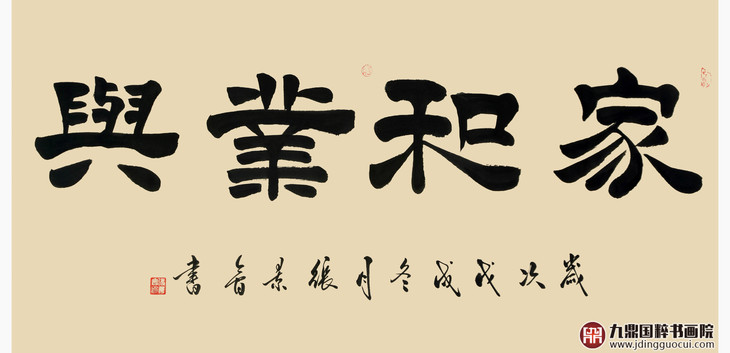 家和業興
歲次戊戌冬月張景書
九鼎国粹书画院
www.jdingguocui.com